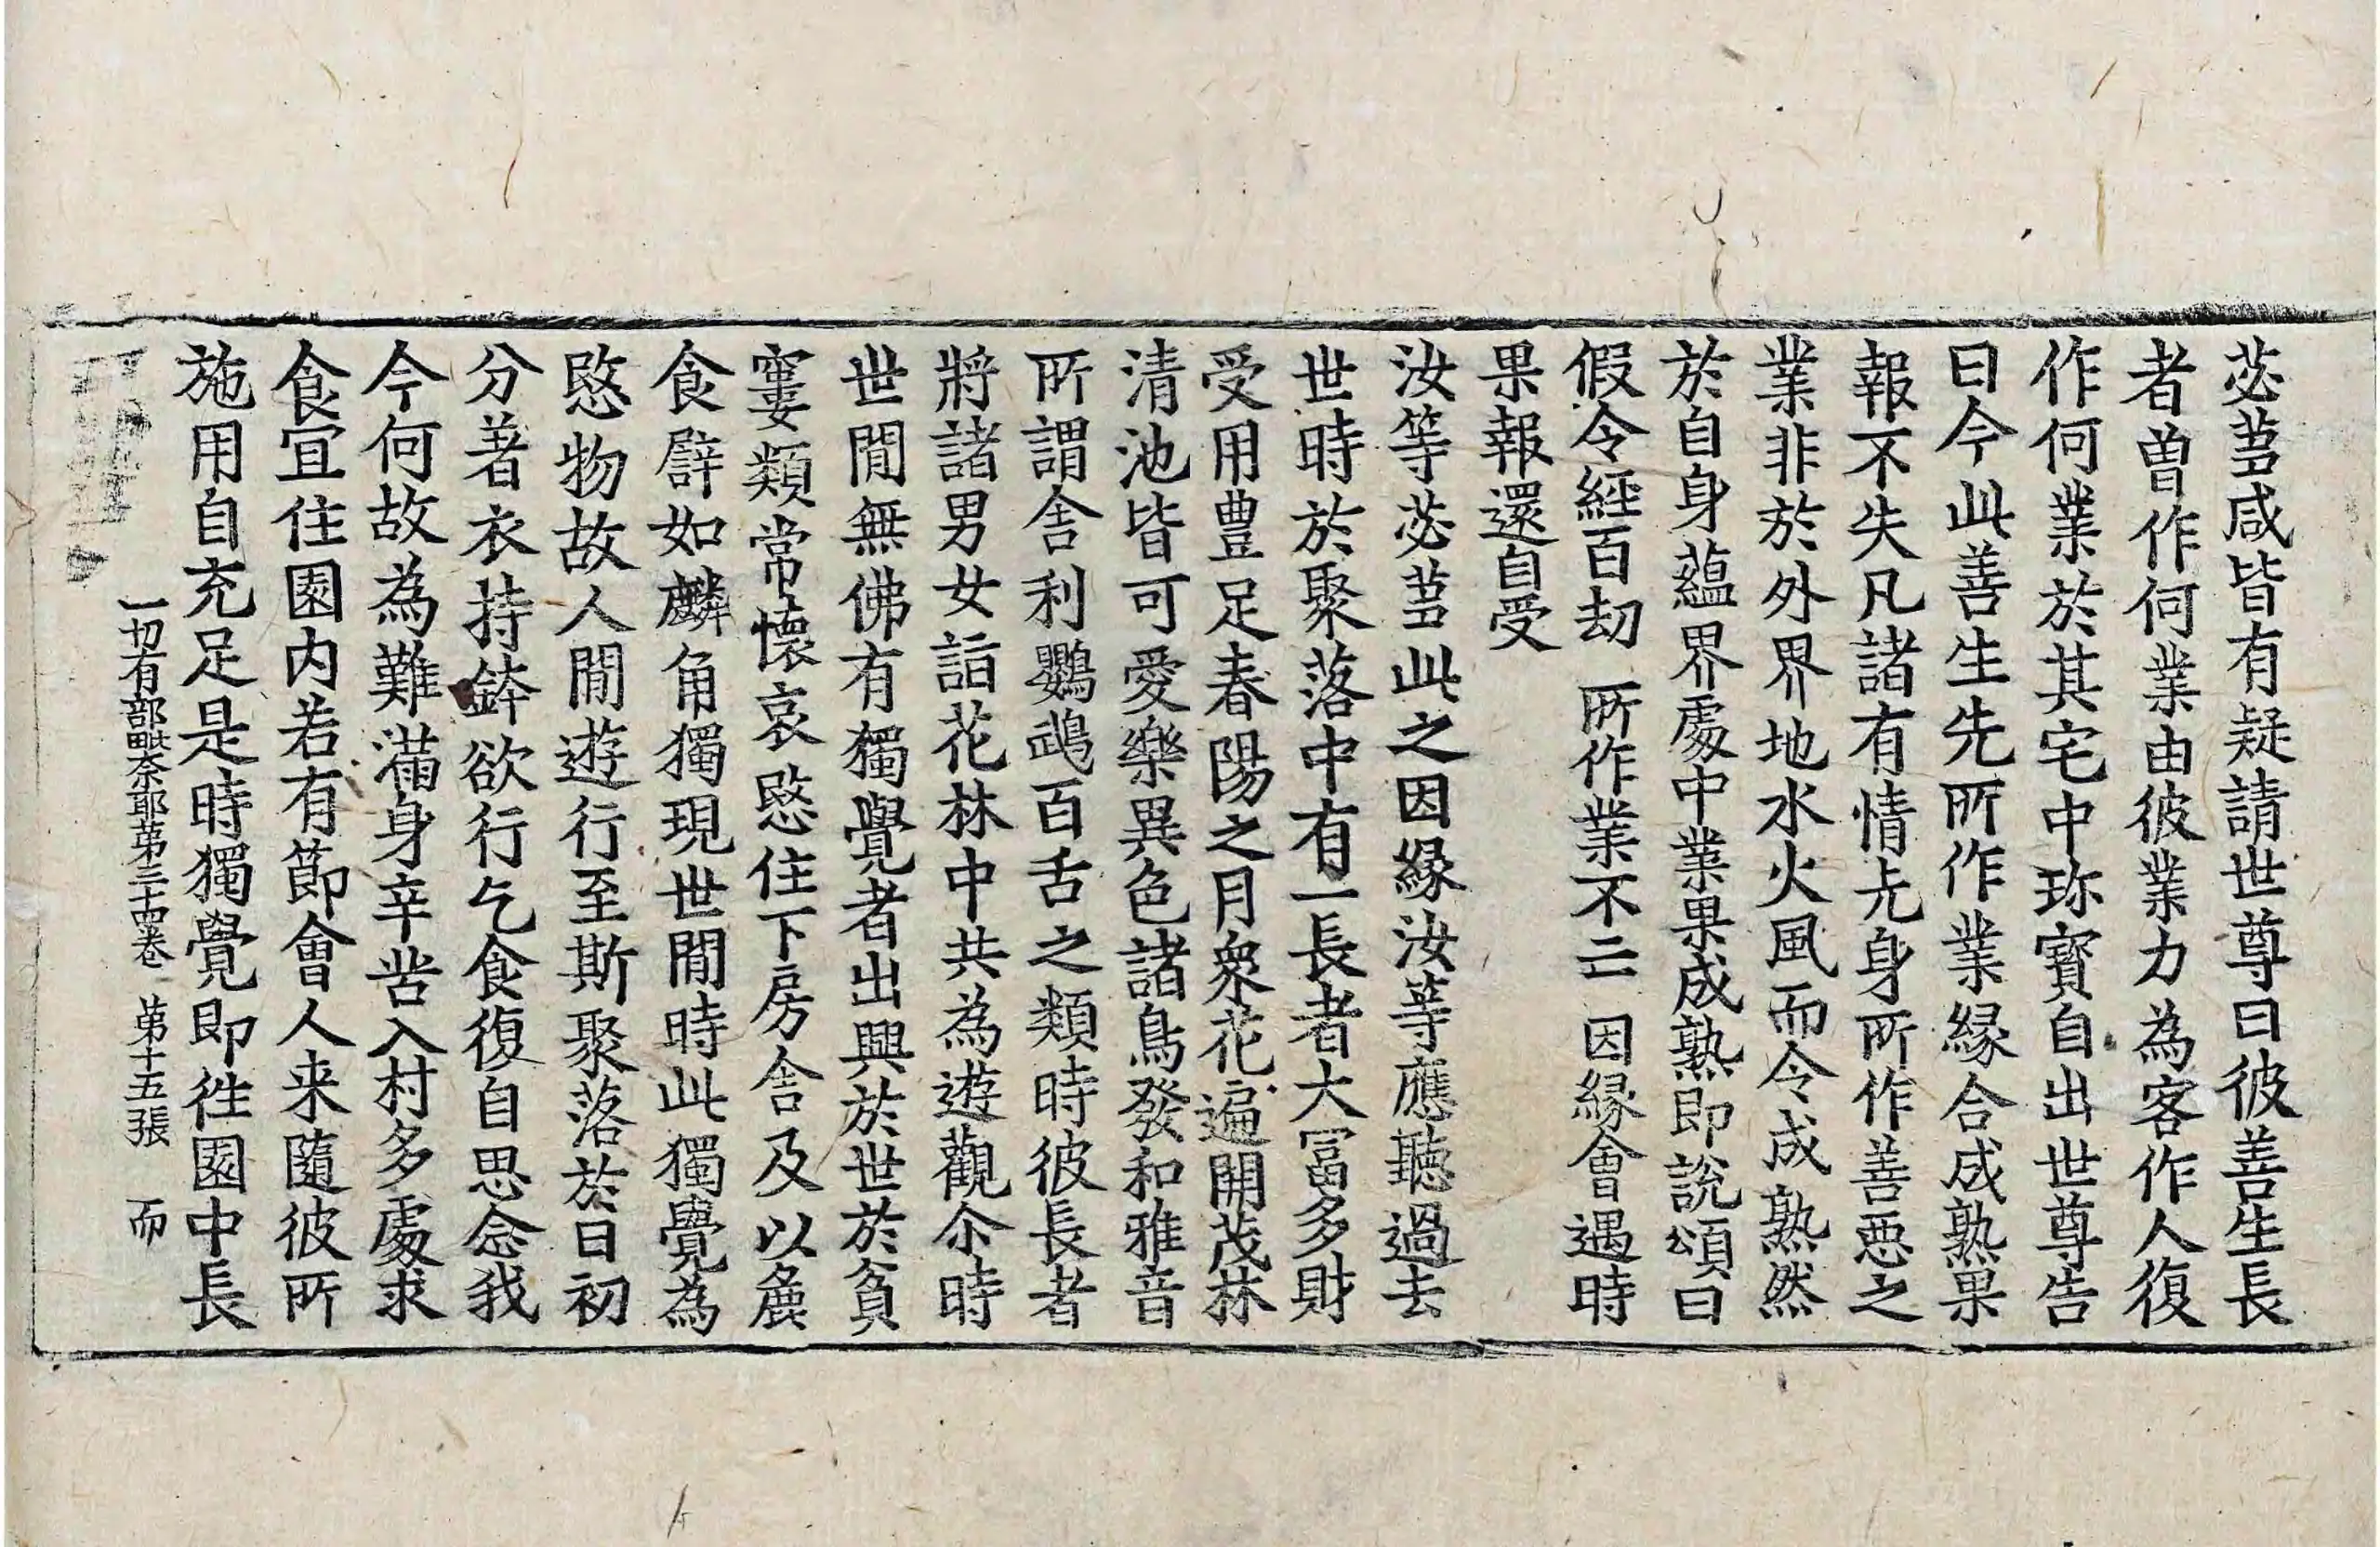 苾芻咸皆有疑請世尊曰彼善生長
者曾作何業由彼業力為客作人復
作何業於其宅中珎寳自出世尊告
曰今此善生先所作業緣合成熟果
報不失凡諸有情㫷身所作善惡之
業非於外界地水火風而令成熟然
於自身蘊界處中業果成熟即說頌曰
假令經百劫　所作業不亡　因緣會遇時
果報還自受
汝等苾芻此之因緣汝等應聽過去
世時於聚落中有一長者大冨多財
受用豊足春陽之月衆花遍開茂林
清池皆可愛樂異色諸鳥發和雅音
所謂舍利鸚鵡百舌之類時彼長者
將諸男女詣花林中共為遊觀尒時
世閒無佛有獨覺者出興於世於貧
窶類常懷哀愍住下房舍及以麁
食辟如麟角獨現世閒時此獨覺為
愍物故人閒遊行至斯聚落於日初
分著衣持鉢欲行乞食復自思念我
今何故為難滿身辛苦入村多處求
食宜住園内若有節會人来隨彼所
施用自充足是時獨覺即徃園中長
一切有部毗奈耶苐三十四卷　苐十五張　而